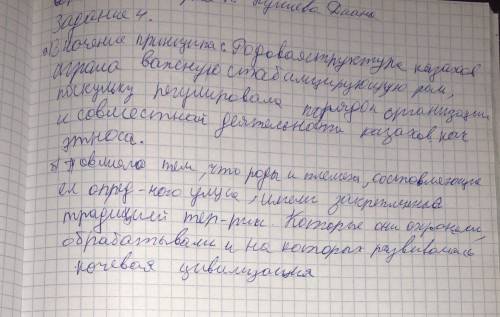 Кушева Диана
Задание 4.
а) Значение принципа: Родовая структура казахов
играла важную стабилизирующую роль,
поскольку регулировала порядок организации
и совместной деятельности казахов как
этноса.
б) Повлияло тем, что роды и племена, составляющие
ел опред-ного улуса, имели закрепленные
традицией тер-рии. Которые они охраняли,
обрабатывали и на которых развивалась
кочевая цивилизация